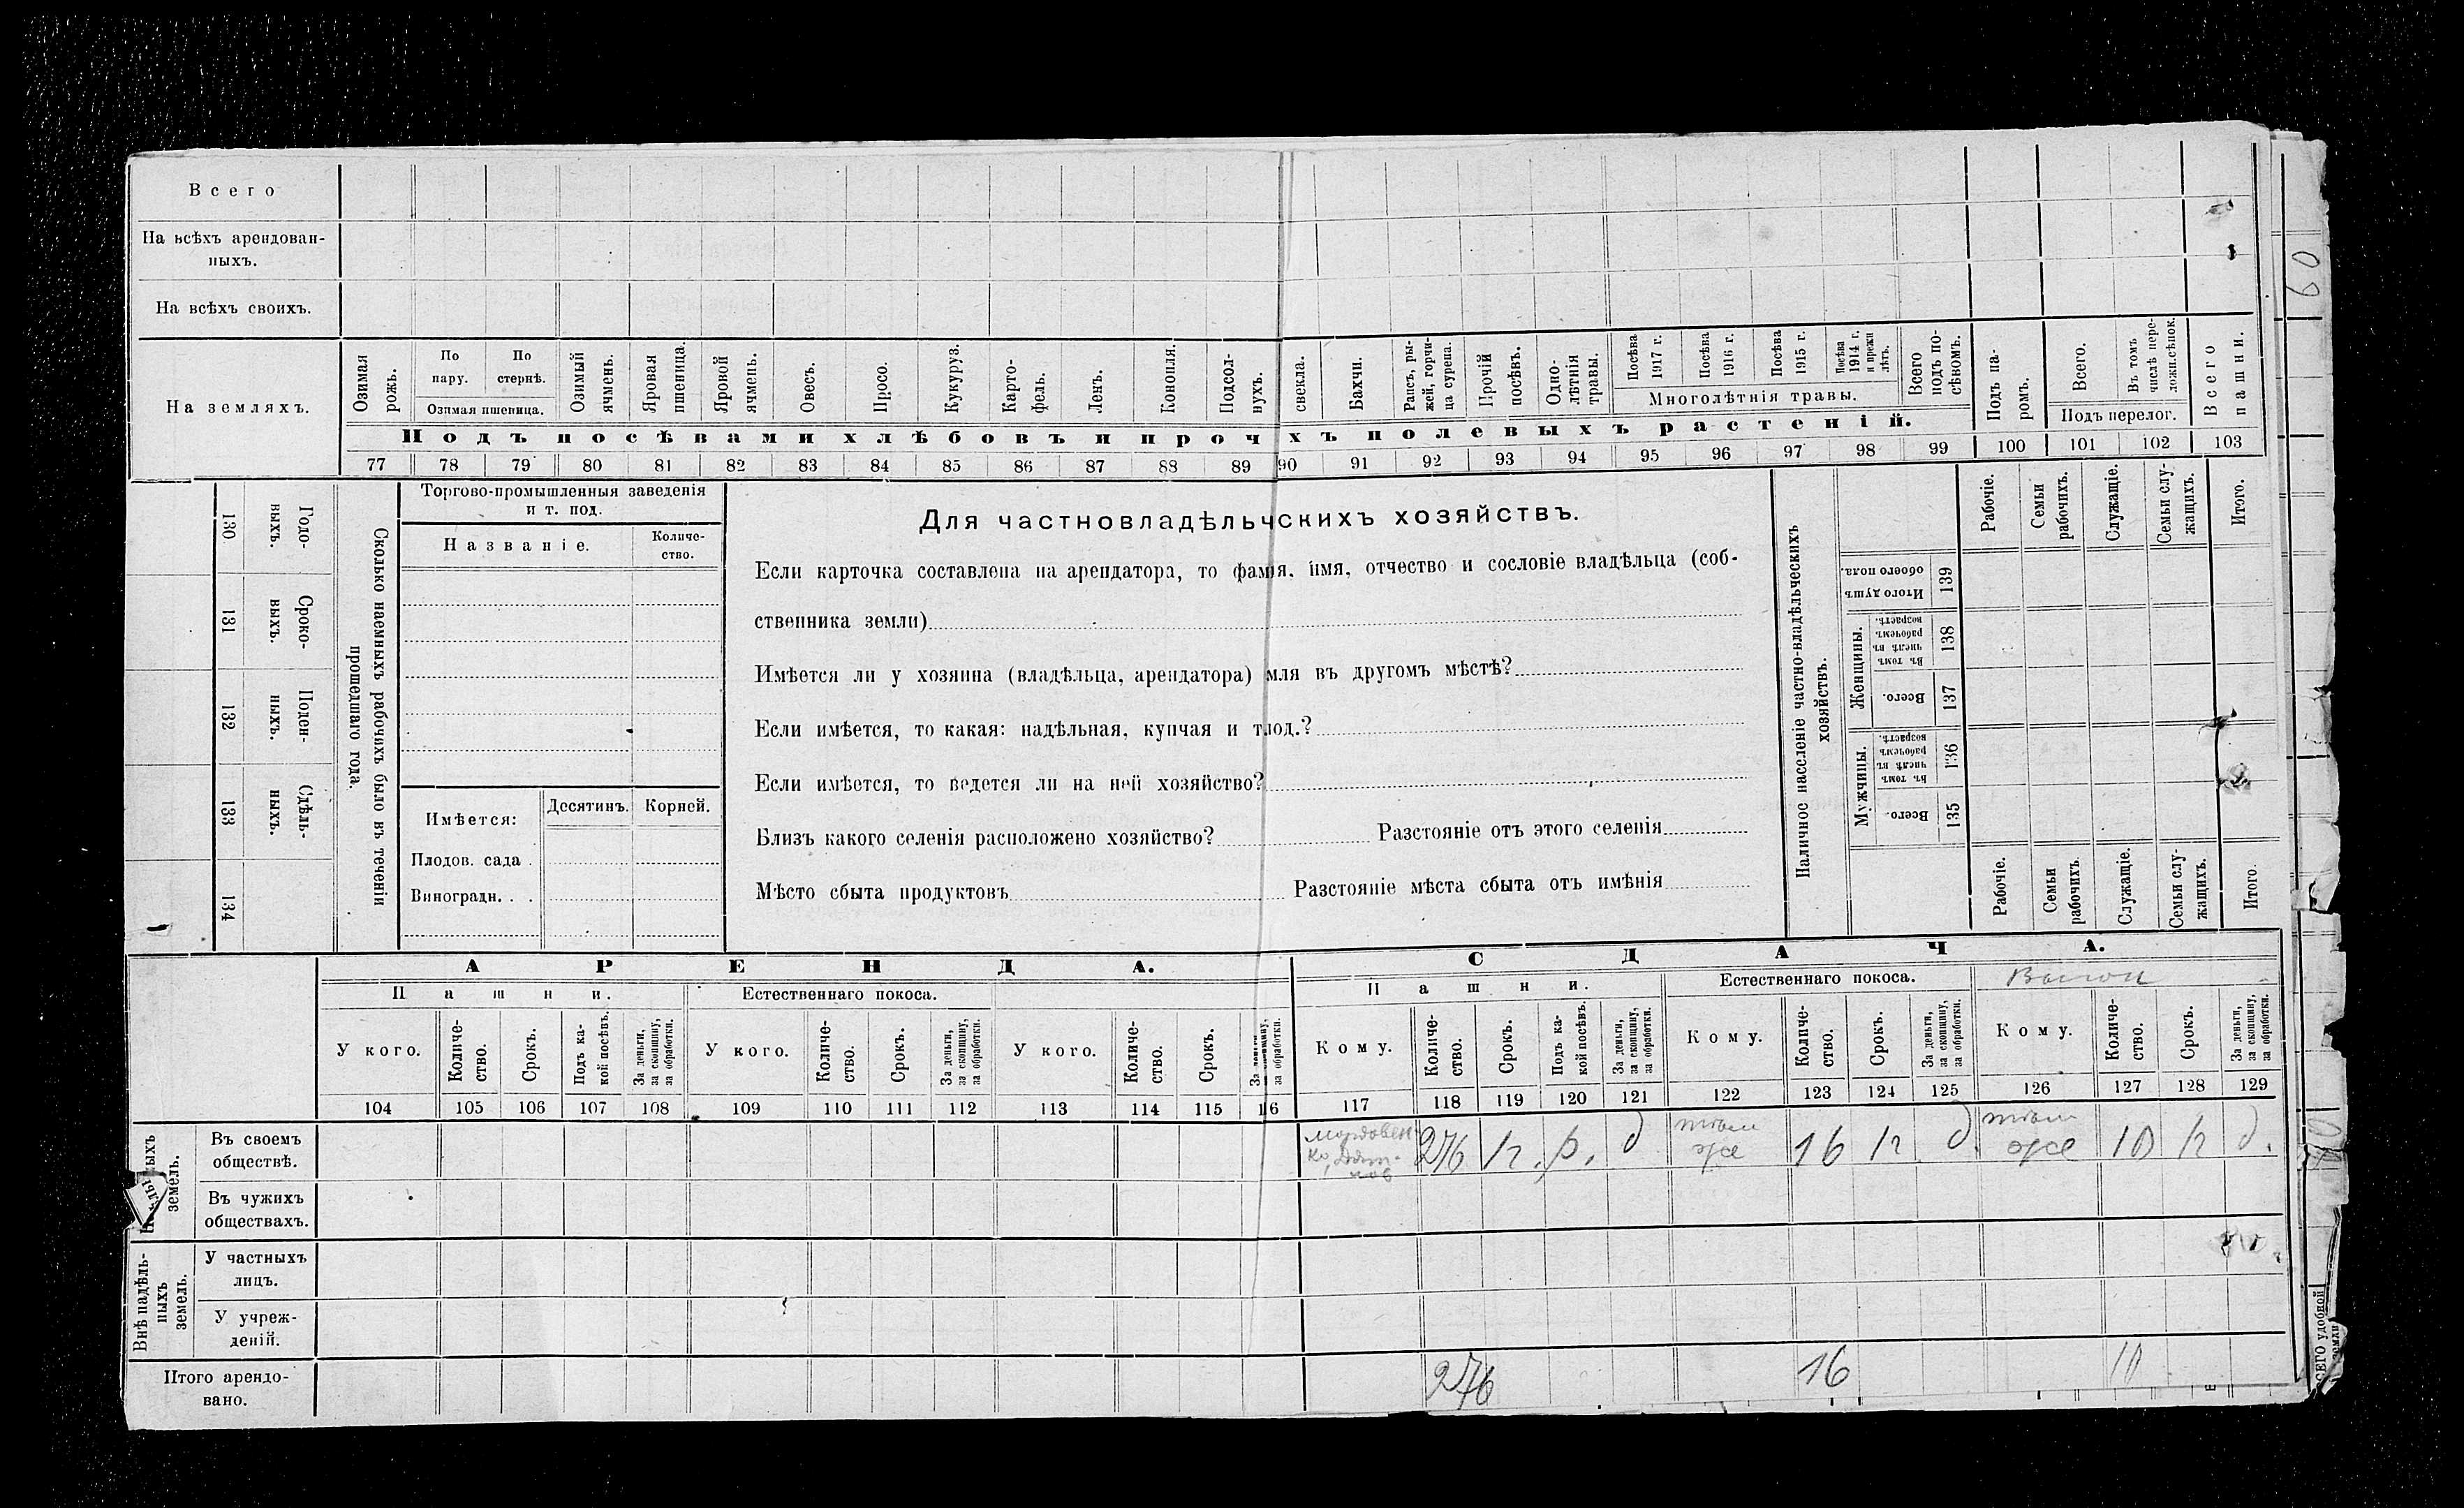 Всего
На всѣхъ арендован-
ныхъ.
На всѣхъ своихъ.
На земляхъ.
Озимая рожь.
По пару.
По стернѣ.
Озимая пшеница.
Озимый ячмень.
Яровая пшеница.
Яровой ячмень.
Овесъ.
Просо.
Кукуруз.
Карто-
фель.
Ленъ.
Конопля.
Подсол-
нухъ.
свекла.
Бахчи.
Рапсъ, ры-
жей, горчи-
ца сурепа.
Прочій посѣвъ.
Одно-
лѣтнія травы.
Посѣва 1917 г.
Посѣва 1916 г.
Посѣва 1915 г.
Посѣва 1914 г. и прежн лѣтъ.
Многолѣтнія травы.
Всего подъ по-
сѣвомъ.
Подъ па-
ромъ.
Всего.
Въ томъ числѣ пере-
ложн.сѣнок.
Подъ перелог.
Всего пашни.
Подъ посѣвами хлѣбовъ и проч хъ полевыхъ растеній.
77 78 79 80 81 82 83 84 85 86 87 88 89 90 91 92 93 94 95 96 97 98 99 100 101 102 103
130 Годо-
выхъ.
131 Сроко-
выхъ.
132 Поден-
ныхъ.
133 Сдѣль-
ныхъ.
134
Сколько наемныхъ рабочихъ было въ теченіи
прошедшаго года.
Торгово-промышленныя заведенія
и т. под.
Названіе.
Количе-
ство.
Имѣется:
Десятинъ.
Корней.
Плодов. сада .
Виноградн. . .
Для частновладѣльческихъ хозяйствъ.
Если карточка составлена на арендатора, то фам я, имя, отчество и сословіе владѣльца (соб-
ственника земли)
Имѣется ли у хозяина (владѣльца, арендатора) мля въ другомъ мѣстѣ?
Если имѣется, то какая: надѣльная, купчая и т под.?
Если имѣется, то ведется ли на ней хозяйство?
Близъ какого селенія расположено хозяйство? Разстояніе отъ этого селенія
Мѣсто сбыта продуктовъ Разстояніе мѣста сбыта отъ имѣнія
Наличное населеніе частно-владѣльческихъ
хозяйствъ.
Рабочіе.
Семьи рабочихъ.
Служащіе.
Семьи слу-
жащихъ.
Итого.
Итого душъ обоего пола. 139
Женщины.
Въ томъ числѣ въ рабочемъ возрастѣ. 138
Всего. 137
Мужчины.
Въ томъ числѣ въ рабочемъ возрастѣ. 136
Всего. 135
Рабочіе.
Семьи рабочихъ.
Служащіе.
Семьи слу-
жащихъ.
Итого.
АРЕНДА.
СДАЧА.
Пашни.
Естественнаго покоса.
Пашни.
Естественнаго покоса.
Выгон
У кого.
Количе-
ство.
Срокъ.
Подъ ка-
кой посѣвъ.
За деньги, за скопщину, за обработки.
У кого.
Количе-
ство.
Срокъ.
За деньги, за скопщину, за обработки.
У кого.
Количе-
ство.
Срокъ.
за обработки.
Кому.
Количе-
ство.
Срокъ.
Подъ ка-
кой посѣвъ.
За деньги, за скопщину, за обработки.
Кому.
Количе-
ство.
Срокъ.
За деньги, за скопщину, за обработки.
Кому.
Количе-
ство.
Срокъ.
За деньги, за скопщину, за обработки.
104 105 106 107 108 109 110 111 112 113 114 115 116 117 118 119 120 121 122 123 124 125 126 127 128 129
земель.
Въ своемъ
обществѣ.
276 1г. р. д
там же 16 1г д.
там же 10 1г д.
Въ чужихъ
обществахъ.
Внѣ надѣль-
ныхъ
земель.
У частныхъ
лицъ.
У учреж-
деній.
Итого арендо-
вано.
276 16 10
60